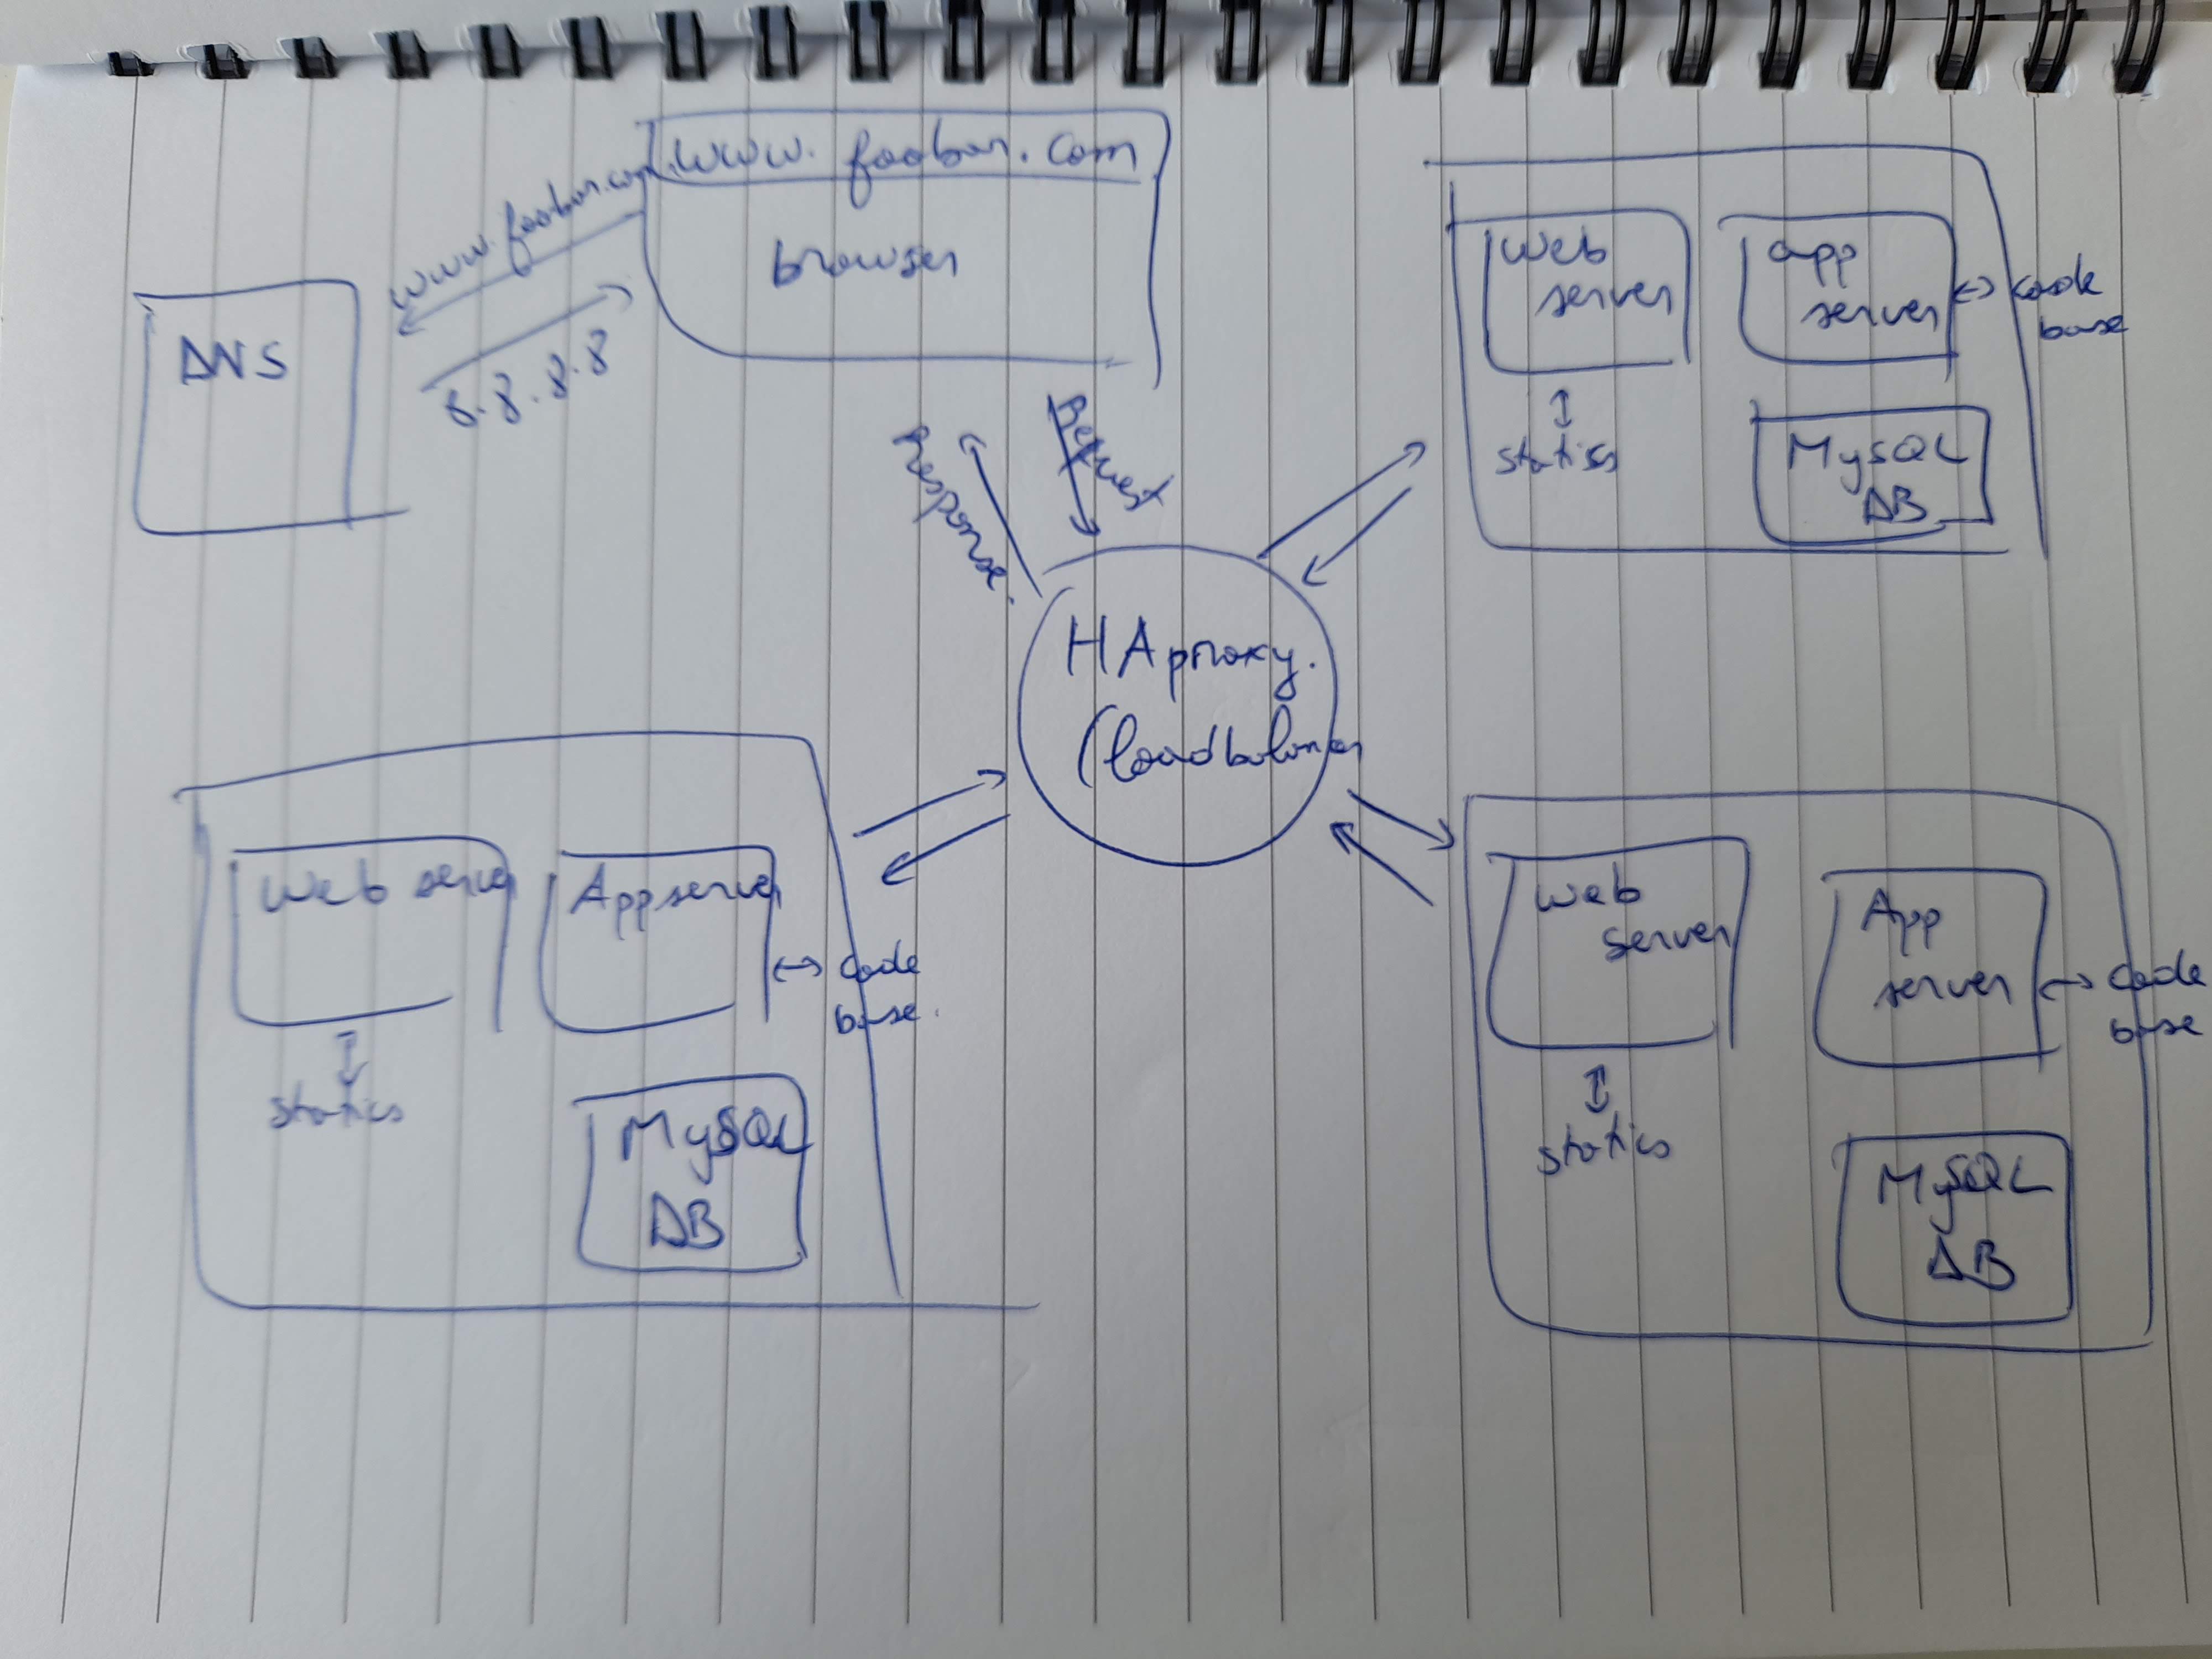 DNS
www.foobar.com
8.8.8.8
www.foobar.com
browser
Response
Request
HAproxy.
(loadbalancer
Web server
statics
App server
↔ code
base.
MySQL
DB
Web
server
statics
app
server
↔ code
base
MySQL
DB
Web
server
statics
App
server
↔ code
base
MySQL
DB